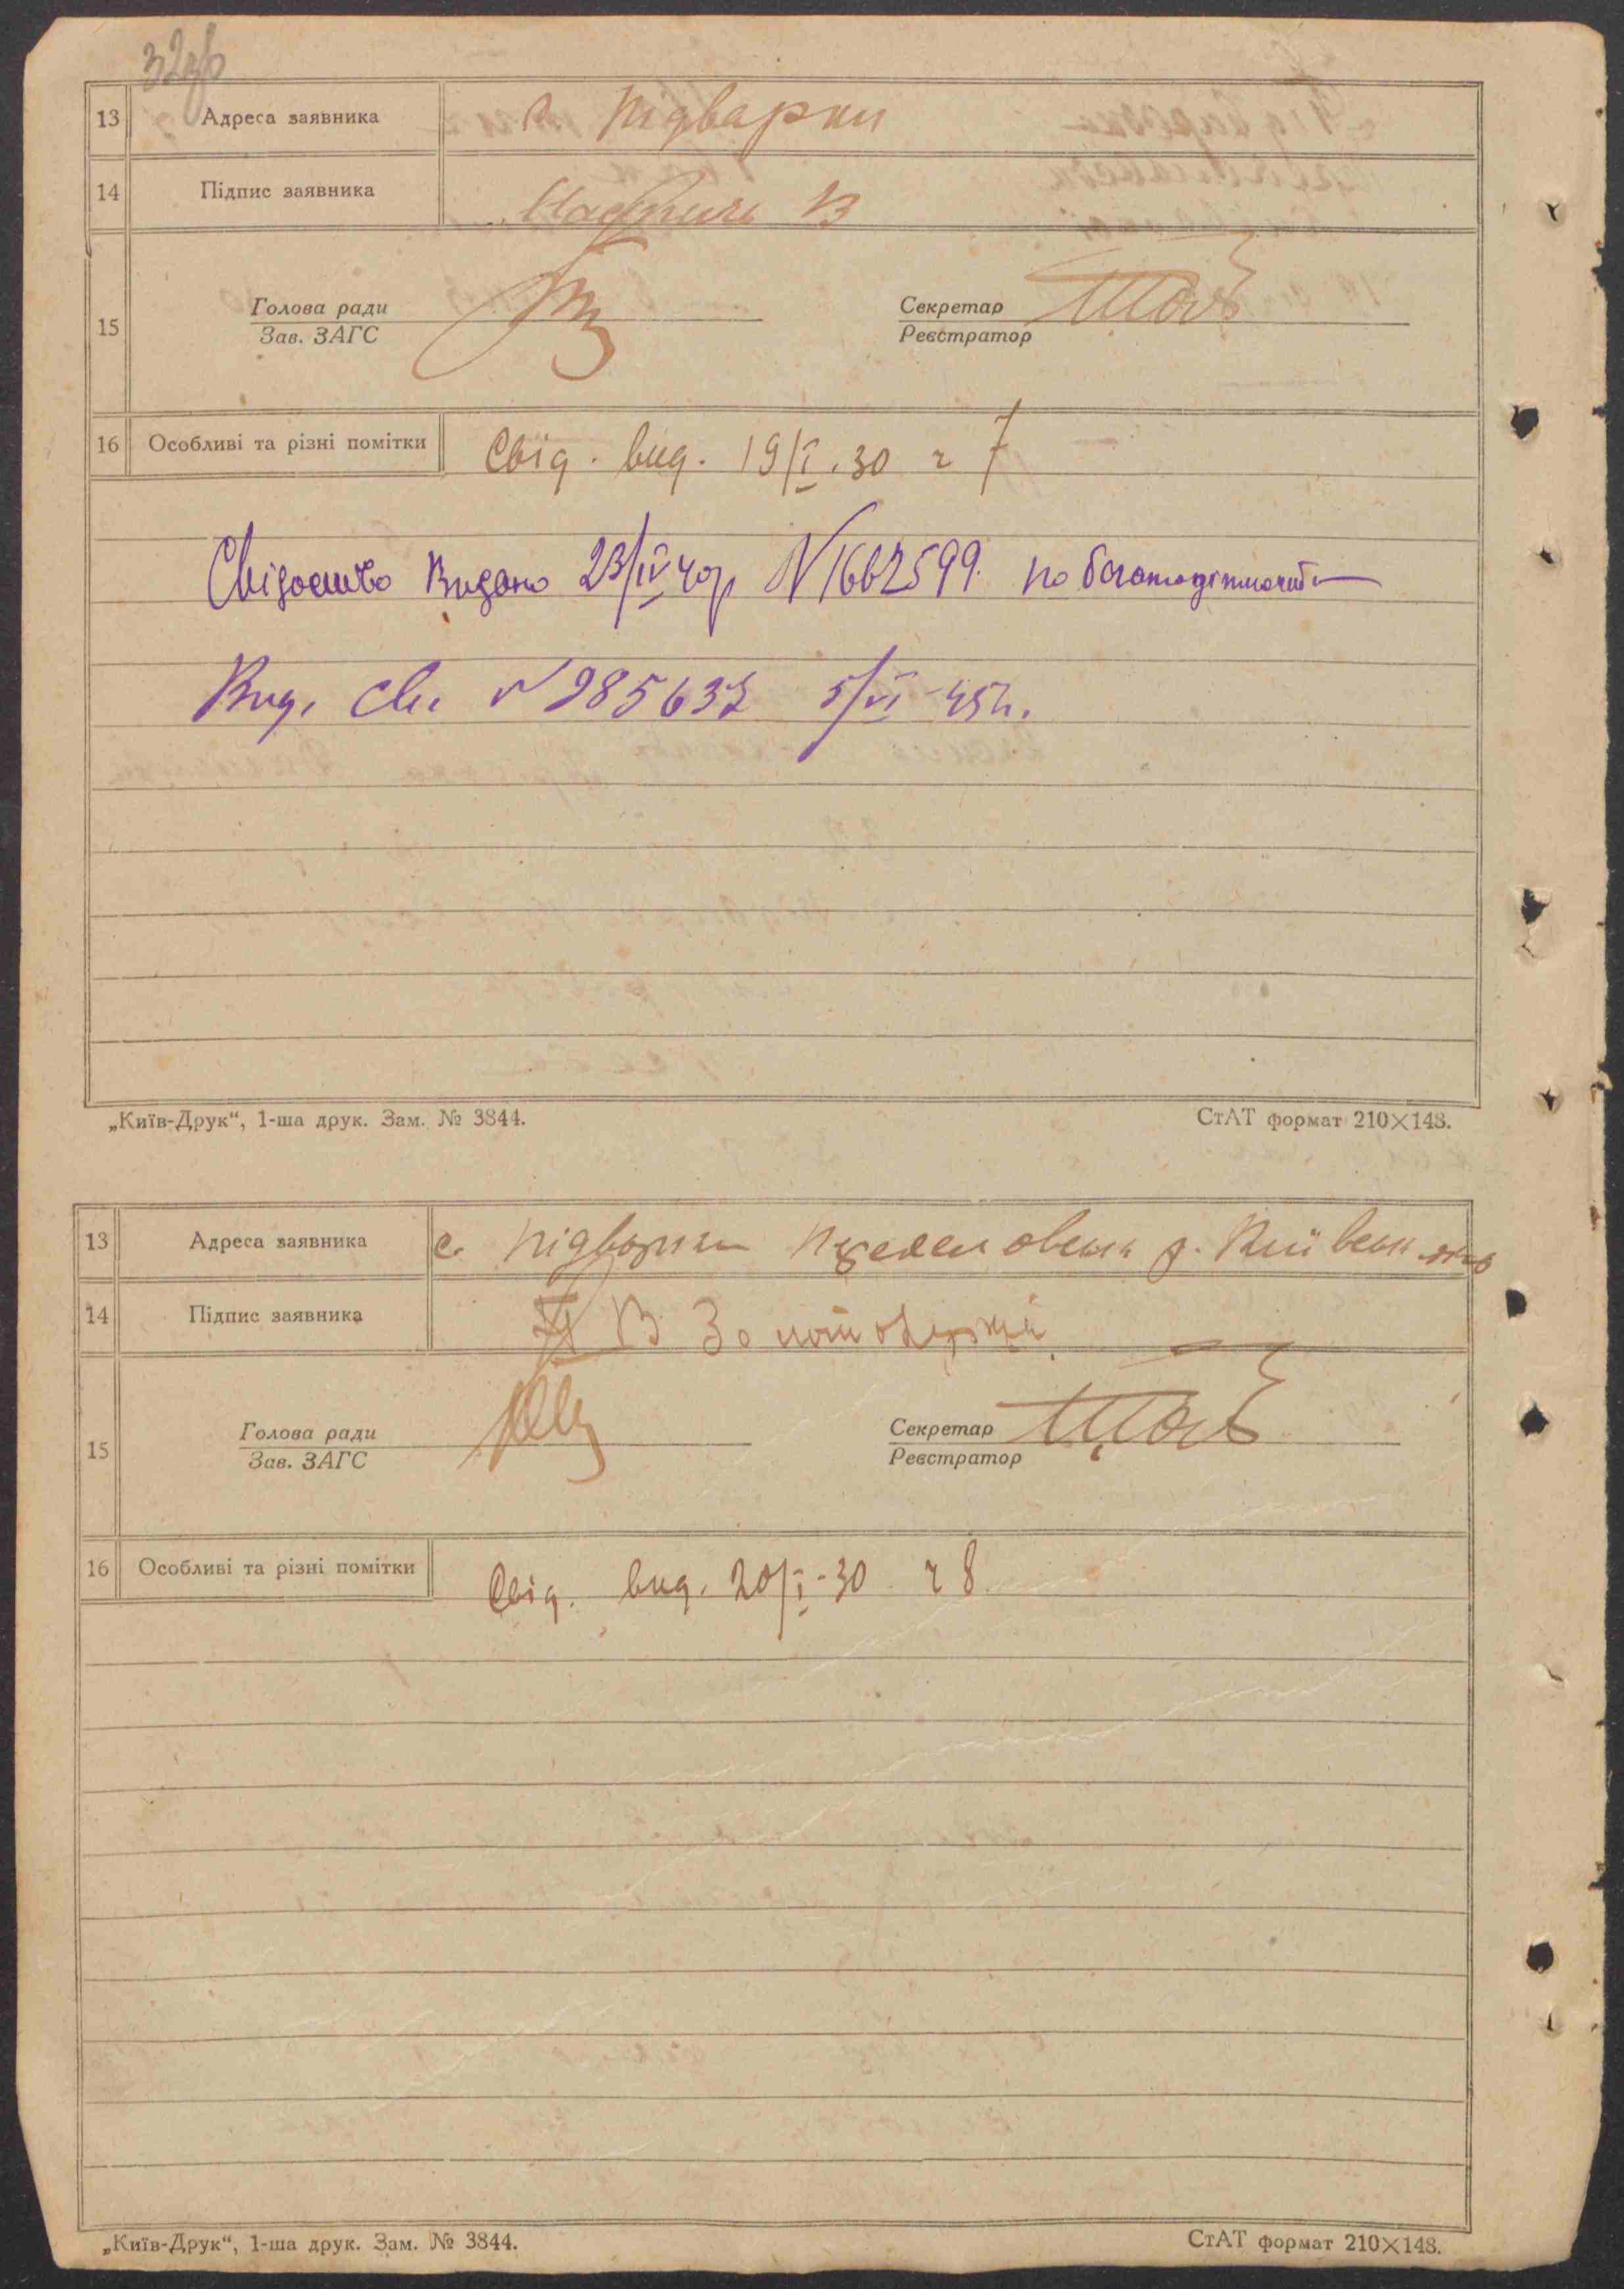 32зв
13 Адреса заявника с. Підварки
14 Підпис заявника В
Голова ради Секретар
15
Зав. ЗАГС Реєстратор
16 Особливі та різні помітки Свід. вид. 19/I.30 ч 7
Свідоцтво Видано 23/IV 40р N 1662599. по багатодітности
Вид. Св. N 985637 5/VI-45р.
„Київ-Друк“, 1-ша друк. Зам. № 3844. СтАТ формат 210×148.
13 Адреса заявника с. Підварки Переяславськ р. Київськ
14 Підпис заявника В
Голова ради Секретар
15
Зав. ЗАГС Реєстратор
16 Особливі та різні помітки Свід. вид. 20/I-30 ч 8
„Київ-Друк“, 1-ша друк. Зам. № 3844. СтАТ формат 210×148.